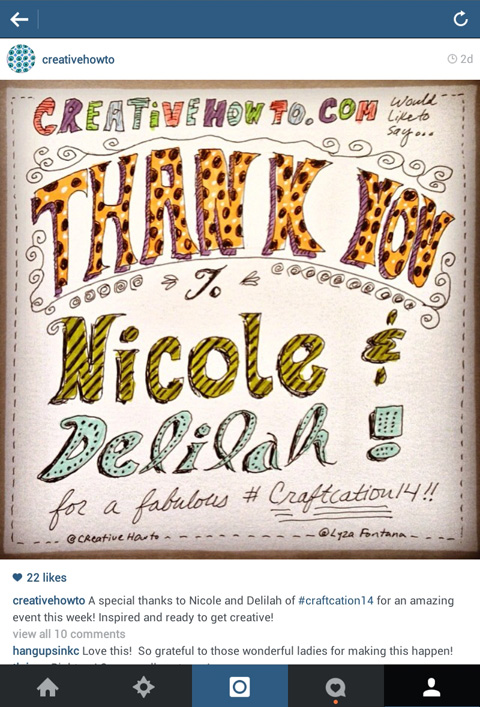 creativehowto
2d
CREATIVEHOWTO.COM
Would
Like to
Say...
THANK YOU
To
Nicole &
Delilah!
for a fabulous # Craftcation14!!
@CReative Howto
@Lyza Fontana
22 likes
creativehowto A special thanks to Nicole and Delilah of #craftcation14 for an amazing
event this week! Inspired and ready to get creative!
view all 10 comments
hangupsinkc Love this! So grateful to those wonderful ladies for making this happen!